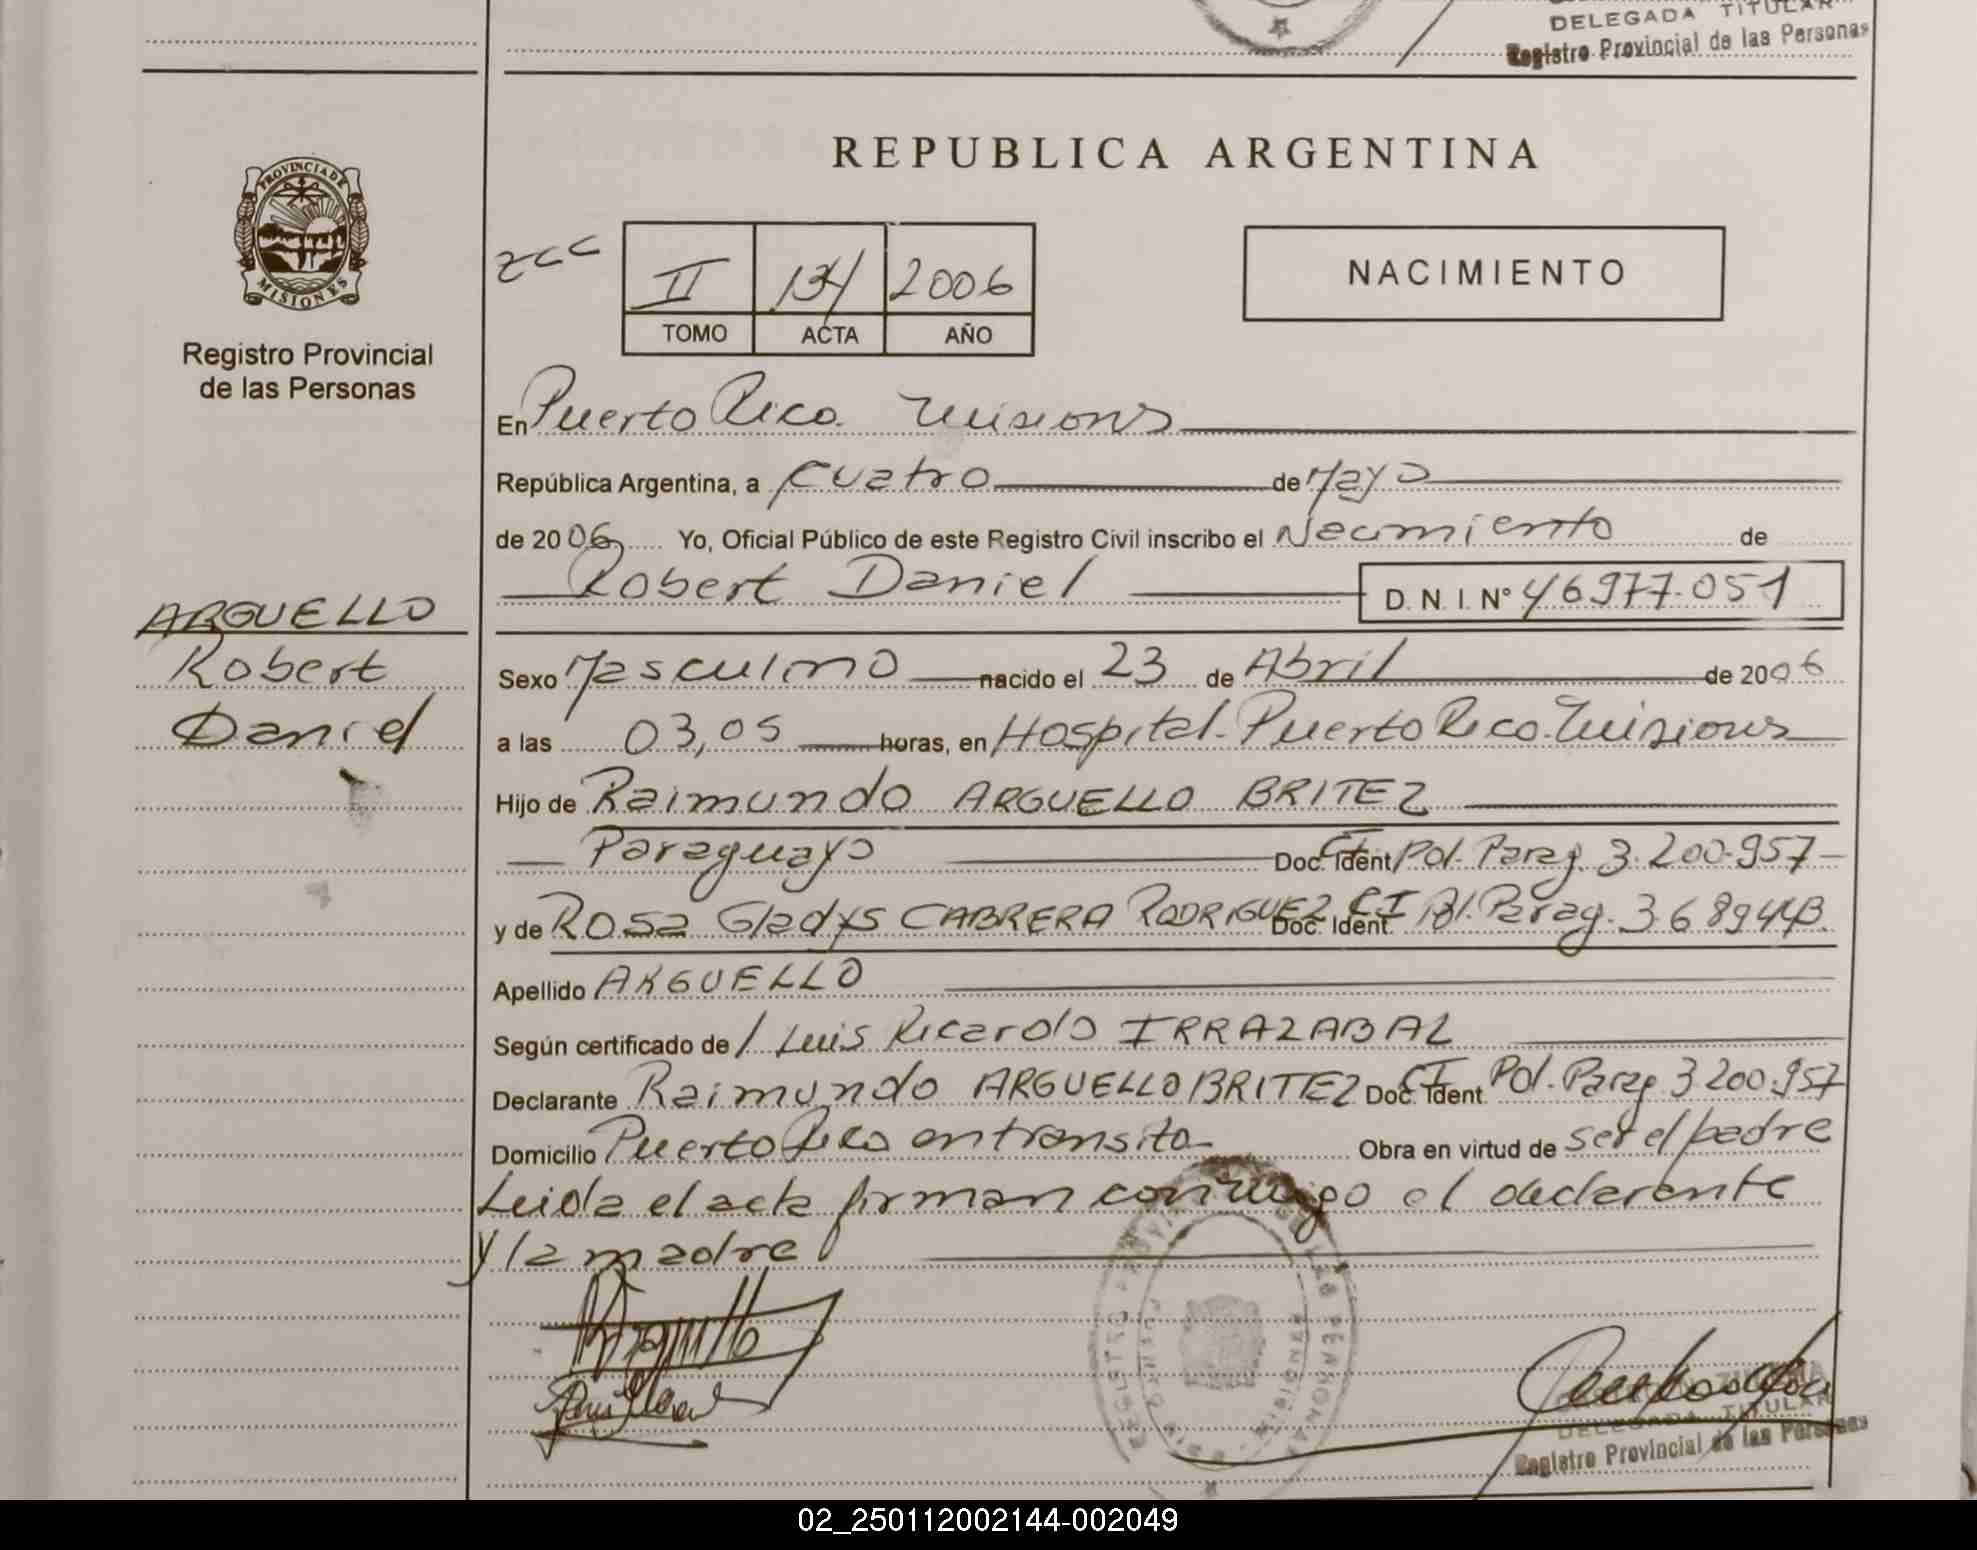 DELEGADA TITULAR
Registro Provincial de las Personas
PROVINCIA DE
MISIONES
Registro Provincial
de las Personas
REPUBLICA ARGENTINA
II 2006
TOMO ACTA AÑO
NACIMIENTO
En Puerto Rico. Misiones
República Argentina, a Cuatro de Mayo
de 2006 Yo, Oficial Público de este Registro Civil inscribo el Nacimiento de
Robert Daniel D. N. I. N° 46977.051
ARGUELLO
Robert
Daniel
Sexo Masculino nacido el 23 de Abril de 2006
a las 03,05 horas, en Hospital. Puerto Rico. Misiones
Hijo de Raimundo ARGUELLO BRITEZ
Paraguayo Doc. Ident CI Pol. Parag. 3.200.957
y de Rosa Gladys CABRERA RODRIGUEZ Doc. Ident CI Pol. Parag.
Apellido ARGUELLO
Según certificado de Luis Ricardo IRRAZABAL
Declarante Raimundo ARGUELLO BRITEZ Doc. Ident. CI Pol. Parag 3200.957
Domicilio Puerto Rico en transito Obra en virtud de ser el padre
Leida el acta firman conmigo el declarante
y la madre
DELEGADA TITULAR
Registro Provincial de las Personas
02_250112002144-002049